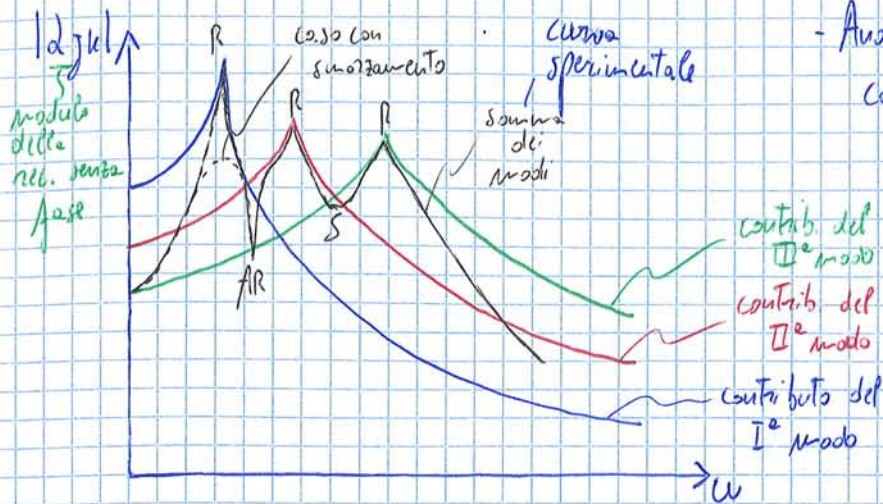 |α jk|
modulo
della
rec. senza
fase
R
caso con
smorzamento
R
R
curva
sperimentale
somma
dei
modi
AR
S
contrib. del
II° modo
contrib. del
II° modo
contributo del
I° modo
ω